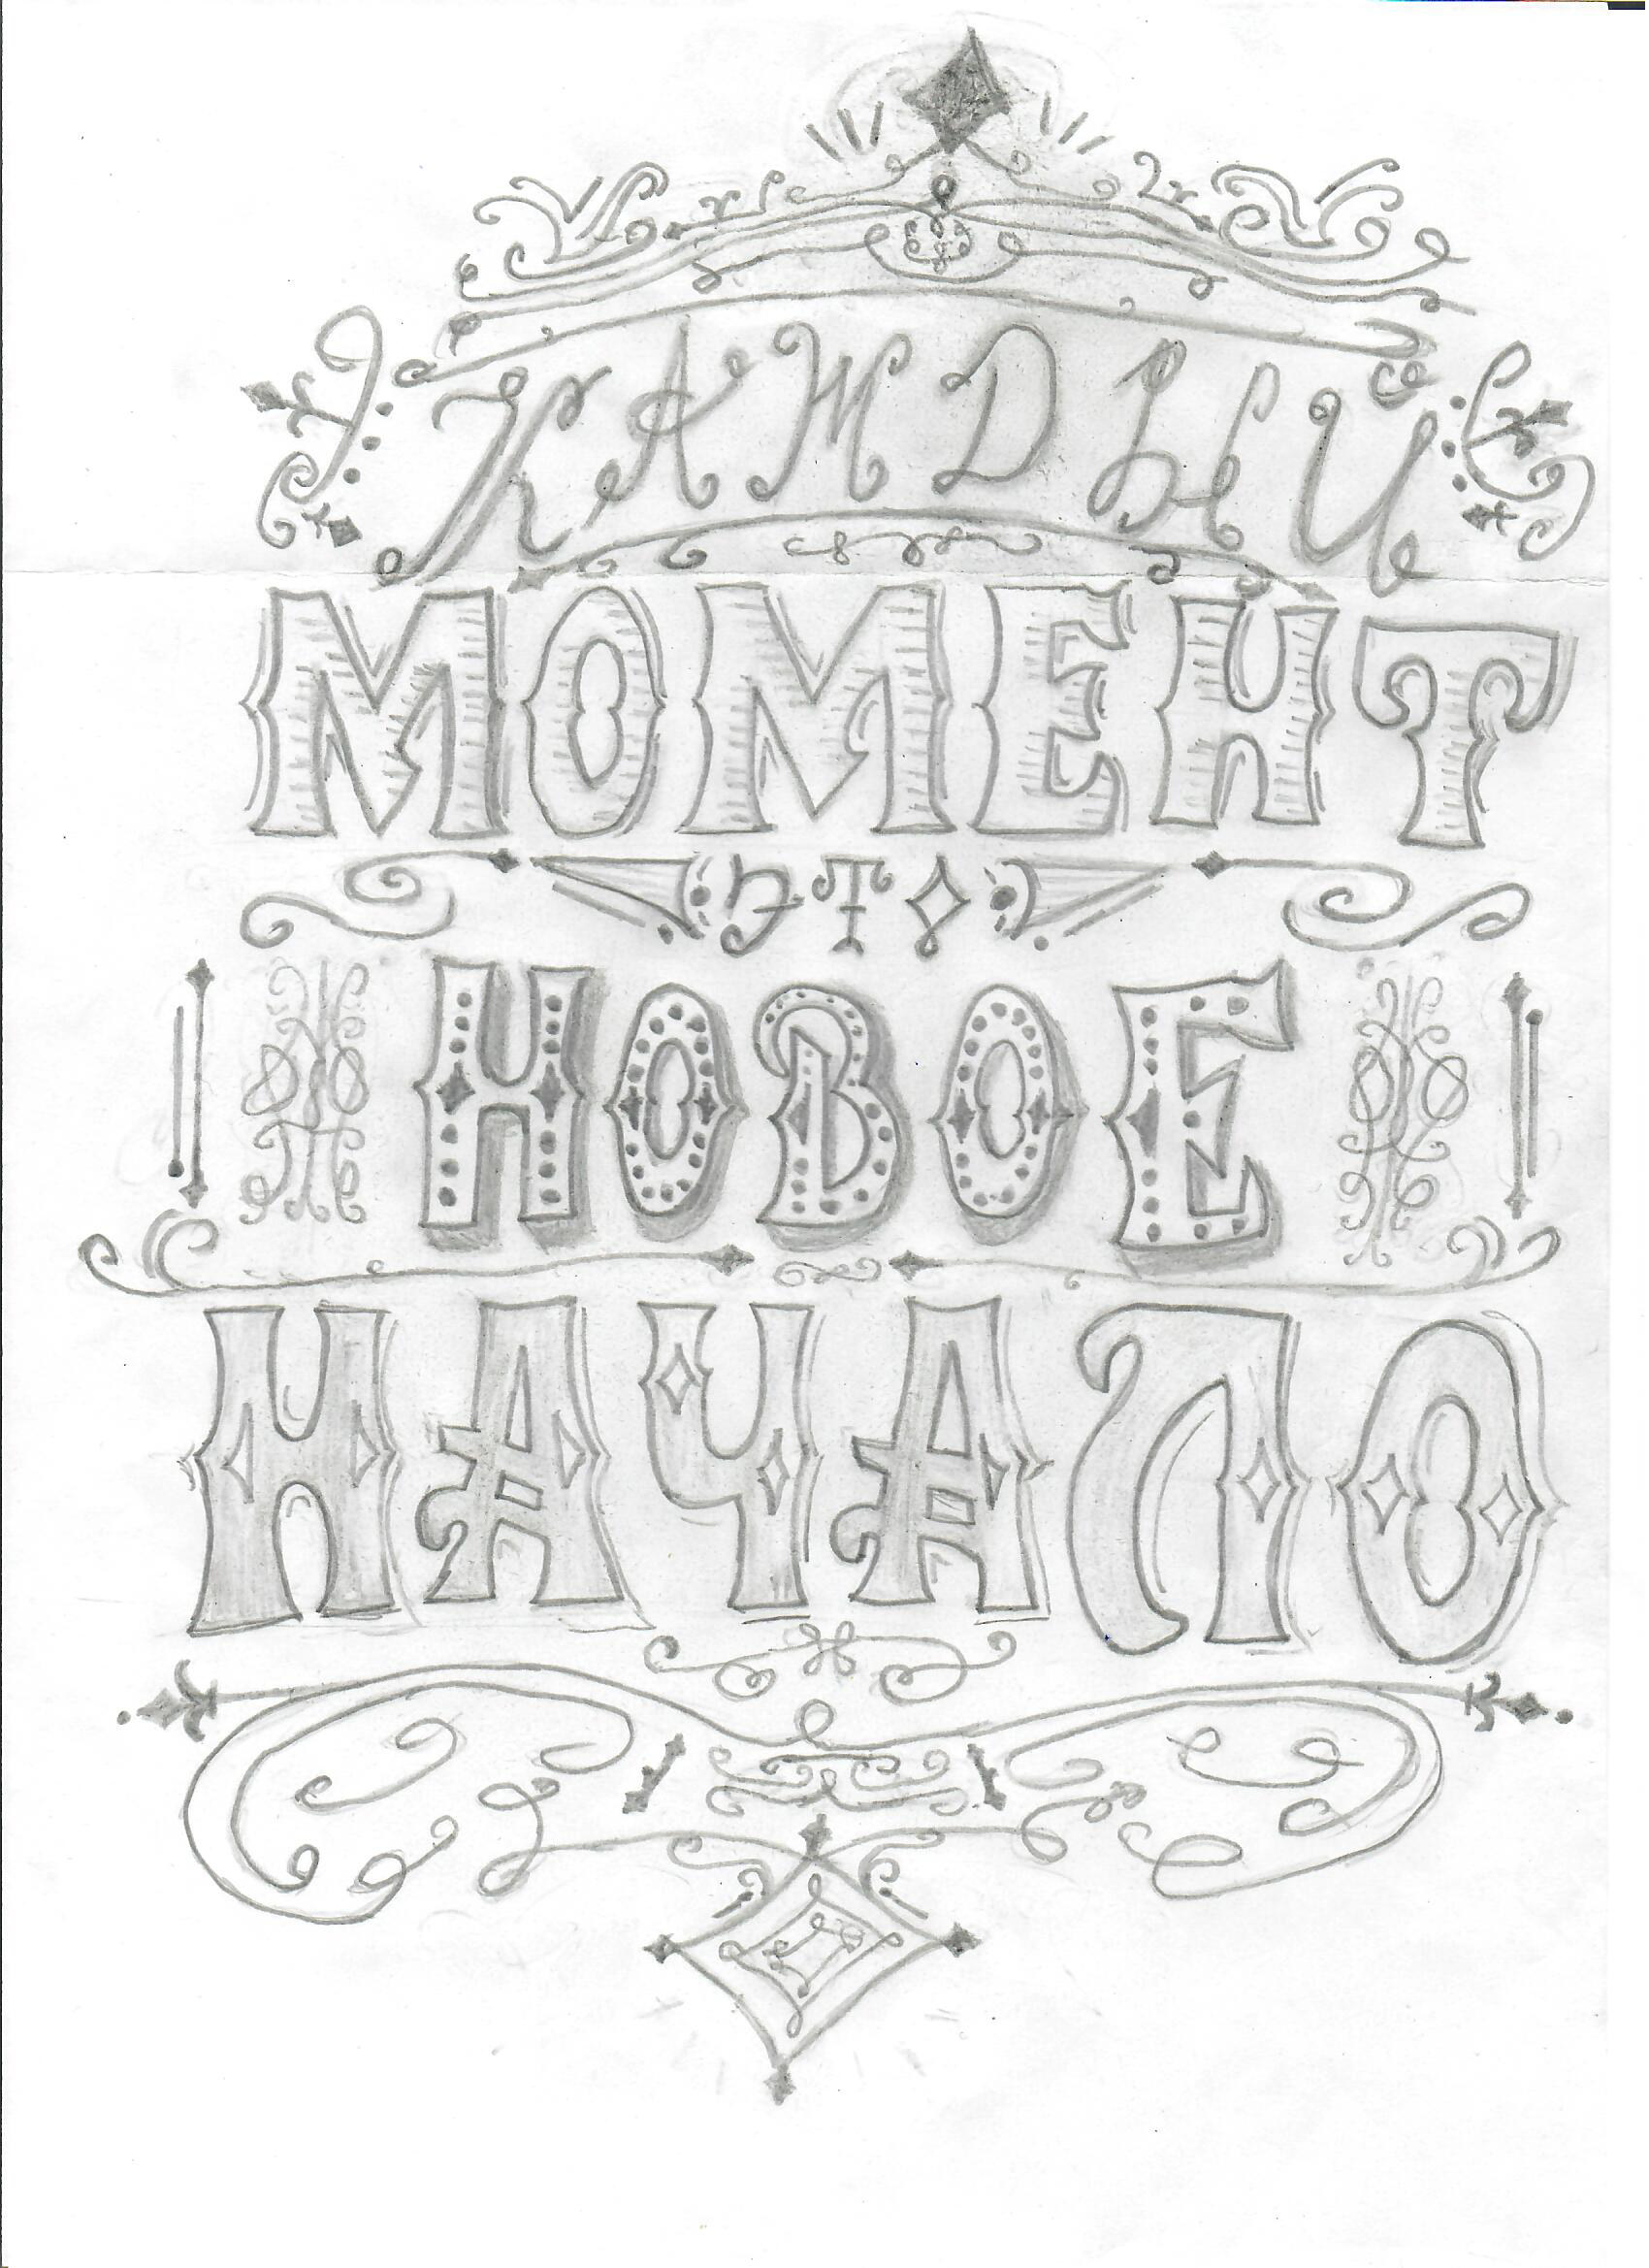 КАЖДЫЙ
МОМЕНТ
ЭТО
НОВОЕ
НАЧАЛО